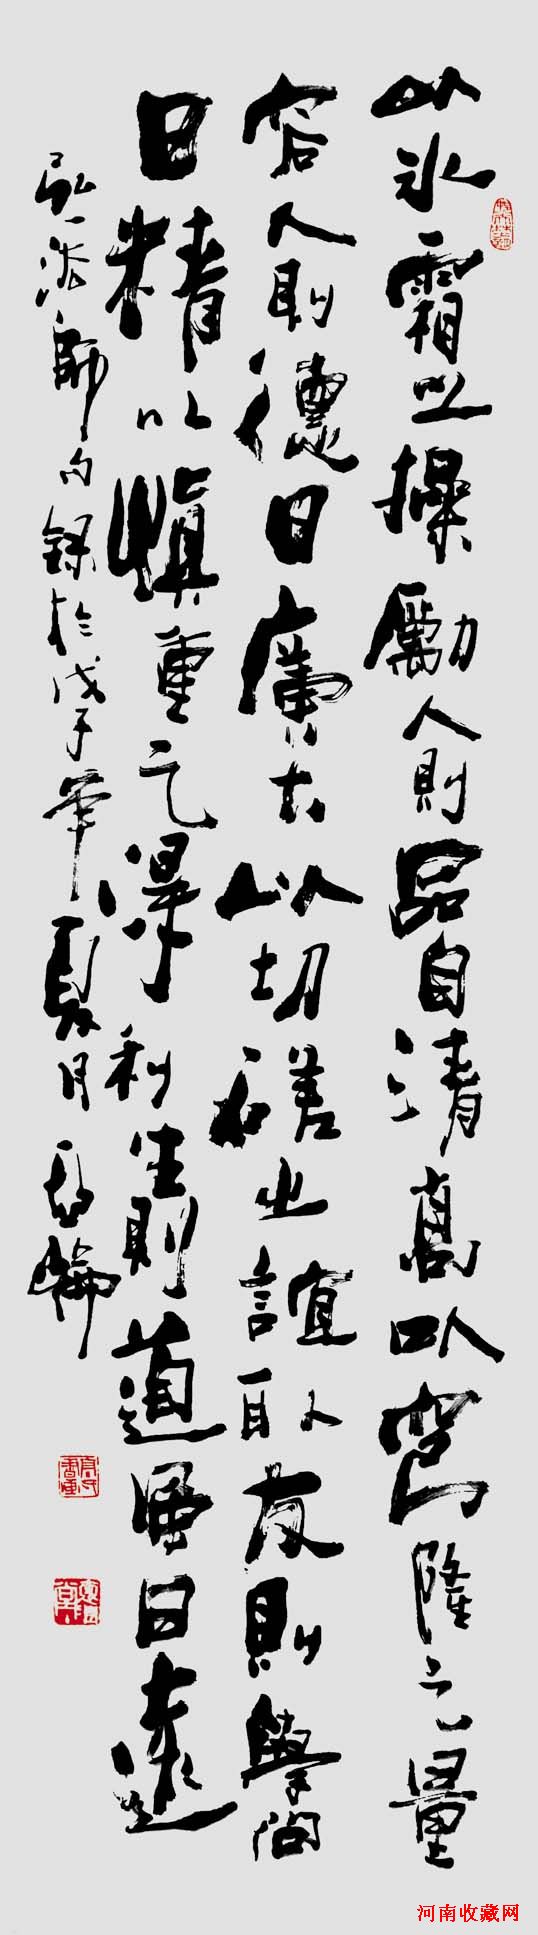 以冰霜之操励人則品自清高以穹隆之量
容人則德日廣大以切磋之誼取友則學問
日精以慎重之深利生則道風日遠
弘一法師句録於戊子年夏月
河南收藏网